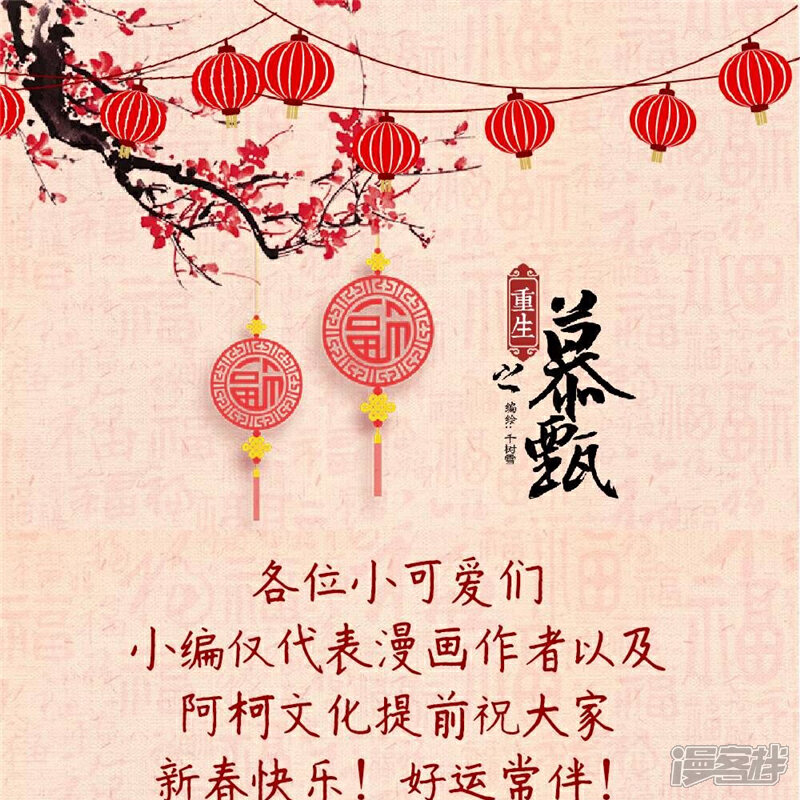 重生
之
慕甄
编绘：千树雪
各位小可爱们
小编仅代表漫画作者以及
阿柯文化提前祝大家
新春快乐！好运常伴！
漫客栈